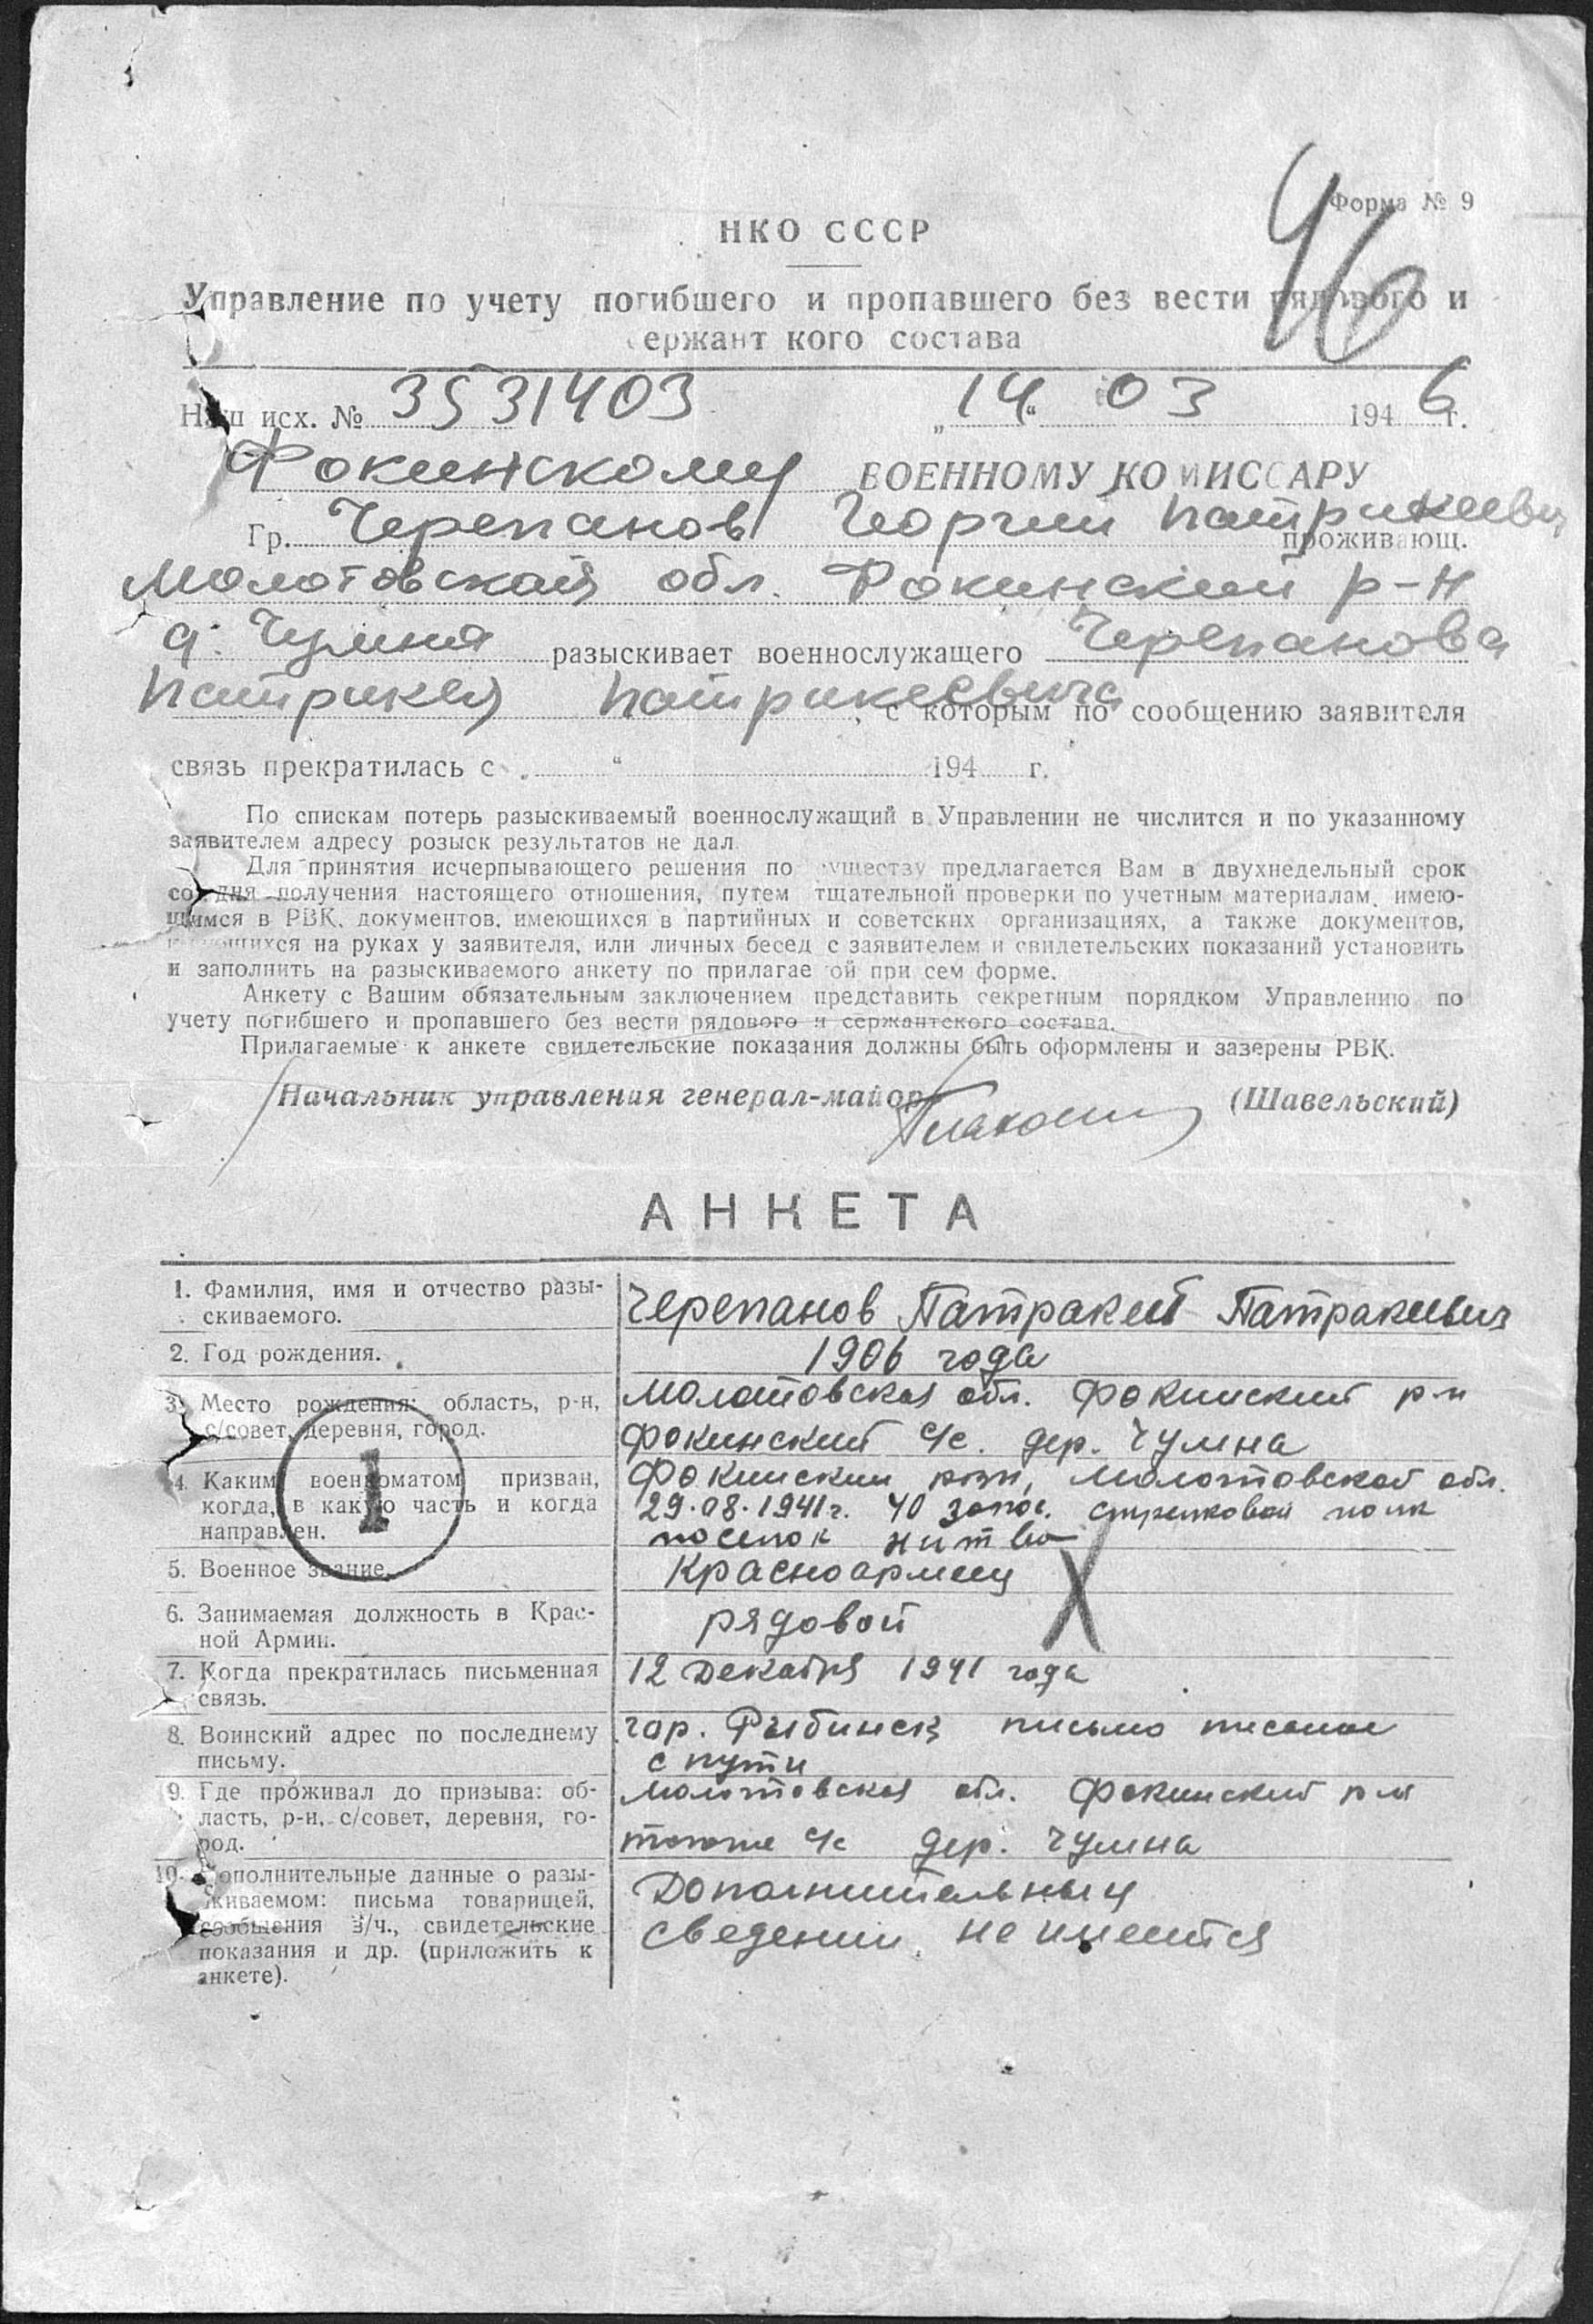 Форма № 9
46
НКО СССР
Управление по учету погибшего и пропавшего без вести рядового и
сержантского состава
Наш исх. № 3531403 „14“ 03 1946 г.
Фокинскому ВОЕННОМУ КОМИССАРУ
Гр. Черепанов Георгий Патрикеевич
проживающ.
Молотовская обл. Фокинский р-н
д. Чумна разыскивает военнослужащего Черепанова
Патрикея Патрикеевича, с которым по сообщению заявителя
связь прекратилась с „ “ 194 г.
По спискам потерь разыскиваемый военнослужащий в Управлении не числится и по указанному
заявителем адресу розыск результатов не дал.
Для принятия исчерпывающего решения по существу предлагается Вам в двухнедельный срок
со дня получения настоящего отношения, путем тщательной проверки по учетным материалам, имею-
щимся в РВК, документов, имеющихся в партийных и советских организациях, а также документов,
имеющихся на руках у заявителя, или личных бесед с заявителем и свидетельских показаний установить
и заполнить на разыскиваемого анкету по прилагаемой при сем форме.
Анкету с Вашим обязательным заключением представить секретным порядком Управлению по
учету погибшего и пропавшего без вести рядового и сержантского состава.
Прилагаемые к анкете свидетельские показания должны быть оформлены и заверены РВК.
Начальник управления генерал-майор (Шавельский)
АНКЕТА
1. Фамилия, имя и отчество разы-
скиваемого.
Черепанов Патракей Патракеевич
2. Год рождения.
1906 года
3. Место рождения: область, р-н,
с/совет, деревня, город.
Молотовская обл. Фокинский р-н
Фокинский с/с. дер. Чумна
4. Каким военкоматом призван,
когда, в какую часть и когда
направлен.
Фокинским рвк, Молотовской обл.
29.08.1941г. 40 запас. стрелковой полк
поселок Нытва
1
5. Военное звание.
Красноармеец
6. Занимаемая должность в Крас-
ной Армии.
рядовой
7. Когда прекратилась письменная
связь.
12 Декабря 1941 года
8. Воинский адрес по последнему
письму.
гор. Рыбинск письмо писаное
с пути
9. Где проживал до призыва: об-
ласть, р-н, с/совет, деревня, го-
род.
Молотовская обл. Фокинский р-н
тогоже с/с дер. Чумна
10. Дополнительные данные о разы-
скиваемом: письма товарищей,
сообщения в/ч., свидетельские
показания и др. (приложить к
анкете).
Дополнительных
сведении не имеится